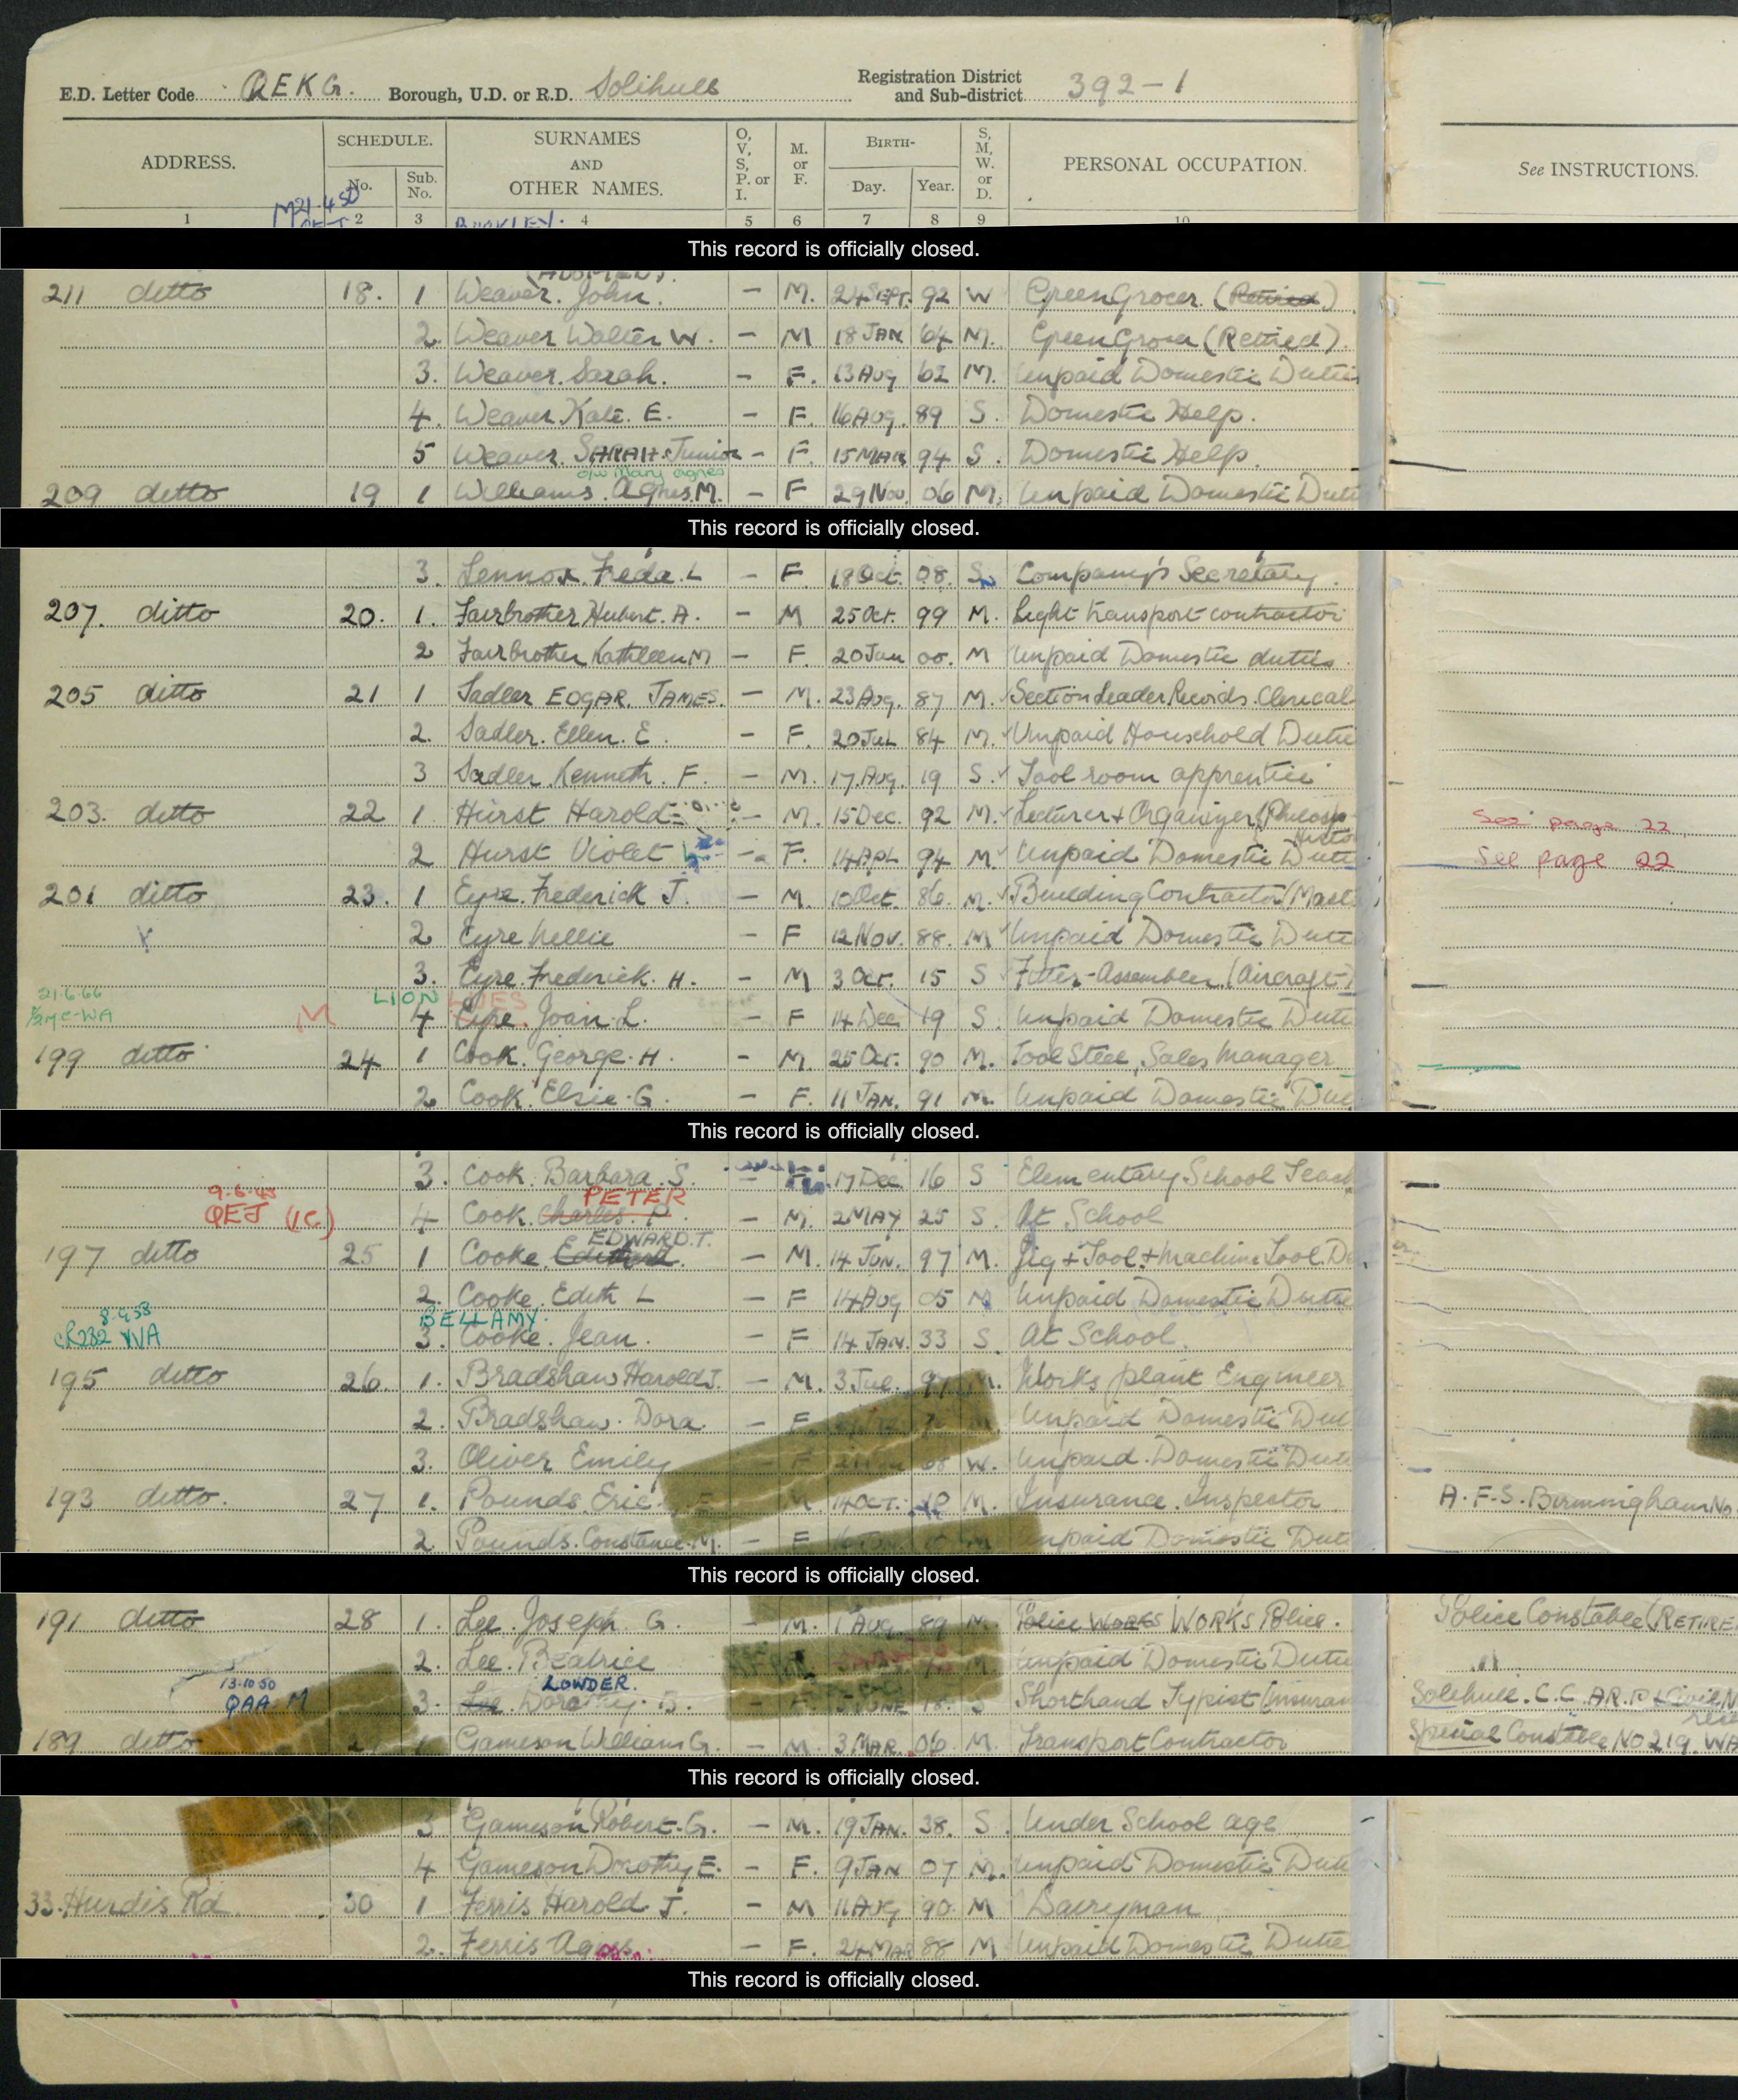 E.D. Letter Code QEKG. Borough, U.D. or R.D. Solihull Registration District and Sub-district 392-1
ADDRESS. SCHEDULE. No. Sub. No. SURNAMES AND OTHER NAMES. O, V, S, P. or I. M. or F. BIRTH- Day. Year. S, M, W. or D. PERSONAL OCCUPATION. See INSTRUCTIONS.
M21.4.50
1 2 3 4 5 6 7 8 9 10
This record is officially closed.
211 ditto 18. 1 Weaver. John. - M. 24 SEPT. 92 W GreenGrocer. (Retired)
2. Weaver Walter W. - M 18 JAN 64 M. GreenGrocer (Retired).
3. Weaver. Sarah. - F. 13 Aug 62 M. Unpaid Domestic Duties
4. Weaver. Kate. E. - F. 16 Aug. 89 S. Domestic Help.
5 Weaver. SARAH. Junior - F. 15 MAR 94 S. Domestic Help.
o/w Mary agnes
209 ditto 19 1 Williams. Agnes. M. - F 29 Nov. 06 M. Unpaid Domestic Duti
This record is officially closed.
3. Lennox. Freda. L - F 18 Oct. 08. S Company's Secretary.
207. ditto 20. 1. Fairbrother Hubert. A. - M 25 Oct. 99 M. Light transport contractor
2 Fairbrother Kathleen M - F. 20 Jan 00. M Unpaid Domestic duties.
205 ditto 21 1 Sadler EDGAR. JAMES. - M. 23 Aug. 87 M. Section Leader Records. Clerical
2. Sadler. Ellen. E. - F. 20 JUL 84 M. Unpaid Household Dutie
3 Sadler. Kenneth. F. - M. 17. Aug. 19 S. Tool room apprentice
203. ditto 22 1 Hurst Harold - M. 15 Dec. 92 M. Lecturer + Organizer (Philoso See page 22
2 Hurst Violet - F. 14 APL 94 M Unpaid Domestic Dutie See page 22
201 ditto 23. 1 Eyre. Frederick J. - M. 10 Oct. 86. M. Building Contractor (Maste
2 Eyre Nellie - F 12 Nov. 88. M Unpaid Domestic Dutie
3. Eyre. Frederick. H. - M 3 Oct. 15 S Fitter-Assembler. (Aircraft)
21.6.66 LION
M 4 Eyre. Joan. L. - F 14 Dec 19 S. Unpaid Domestic Duti
199 ditto 24 1 Cook. George. H. - M. 25 Oct. 90 M. Tool Steel, Sales Manager
2 Cook. Elsie. G. - F. 11 JAN. 91 M. Unpaid Domestic Du
This record is officially closed.
3. Cook. Barbara. S. - F. 17 Dec 16 S Elementary School Teach
9.6.43 PETER
QEJ (1C) 4 Cook. Charles. P. - M. 2 MAY 25 S. At School
EDWARD.T.
197 ditto 25 1 Cooke - M. 14 JUN. 97 M. Jig + Tool. + machine Tool. D
2. Cooke. Edith L - F 14 Aug 05 M Unpaid Domestic Dutie
8.4.53 BELLAMY.
CR282 WA 3. Cooke. Jean. - F 14 JAN. 33 S. At School
195 ditto 26. 1. Bradshaw Harold J. - M. 3 Jul. 97 M. Works plant Engineer
2. Bradshaw. Dora. - F. Unpaid Domestic Dut
3. Oliver Emily - F 68 W. Unpaid. Domestic Duti
193 ditto. 27 1. Pounds. Eric. M. 14 OCT. 10 M. Insurance. Inspector A.F.S. Birmingham No.
2 Pounds. Constance. M. - F Unpaid Domestic Duti
This record is officially closed.
191 ditto 28 1. Lee. Joseph. G. - M. 1 Aug. 89 M. Police Works WORKS Police. Police Constable (RETIRE
2. Lee. Beatrice Unpaid Domestic Dutie
13.10.50 LOWDER.
QAA M 3. Lee. Dorothy. B. - F JUNE 18. S Shorthand Typist (Insuran Solihull. C.C. A.R.P.
189 ditto 1 Gameson William G. - M. 3 MAR. 06. M. Transport Contractor Special Constable No 219. WA
This record is officially closed.
3 Gameson Robert. G. - M. 19 JAN. 38. S. Under School age
4 Gameson Dorothy E. - F. 9 JAN 07 M. Unpaid Domestic Duti
33. Hurdis Rd. 30 1 Ferris Harold J. - M 11 Aug 90. M Dairyman
2. Ferris Agnes - F. 24 MAR 88 M Unpaid Domestic Dutie
This record is officially closed.